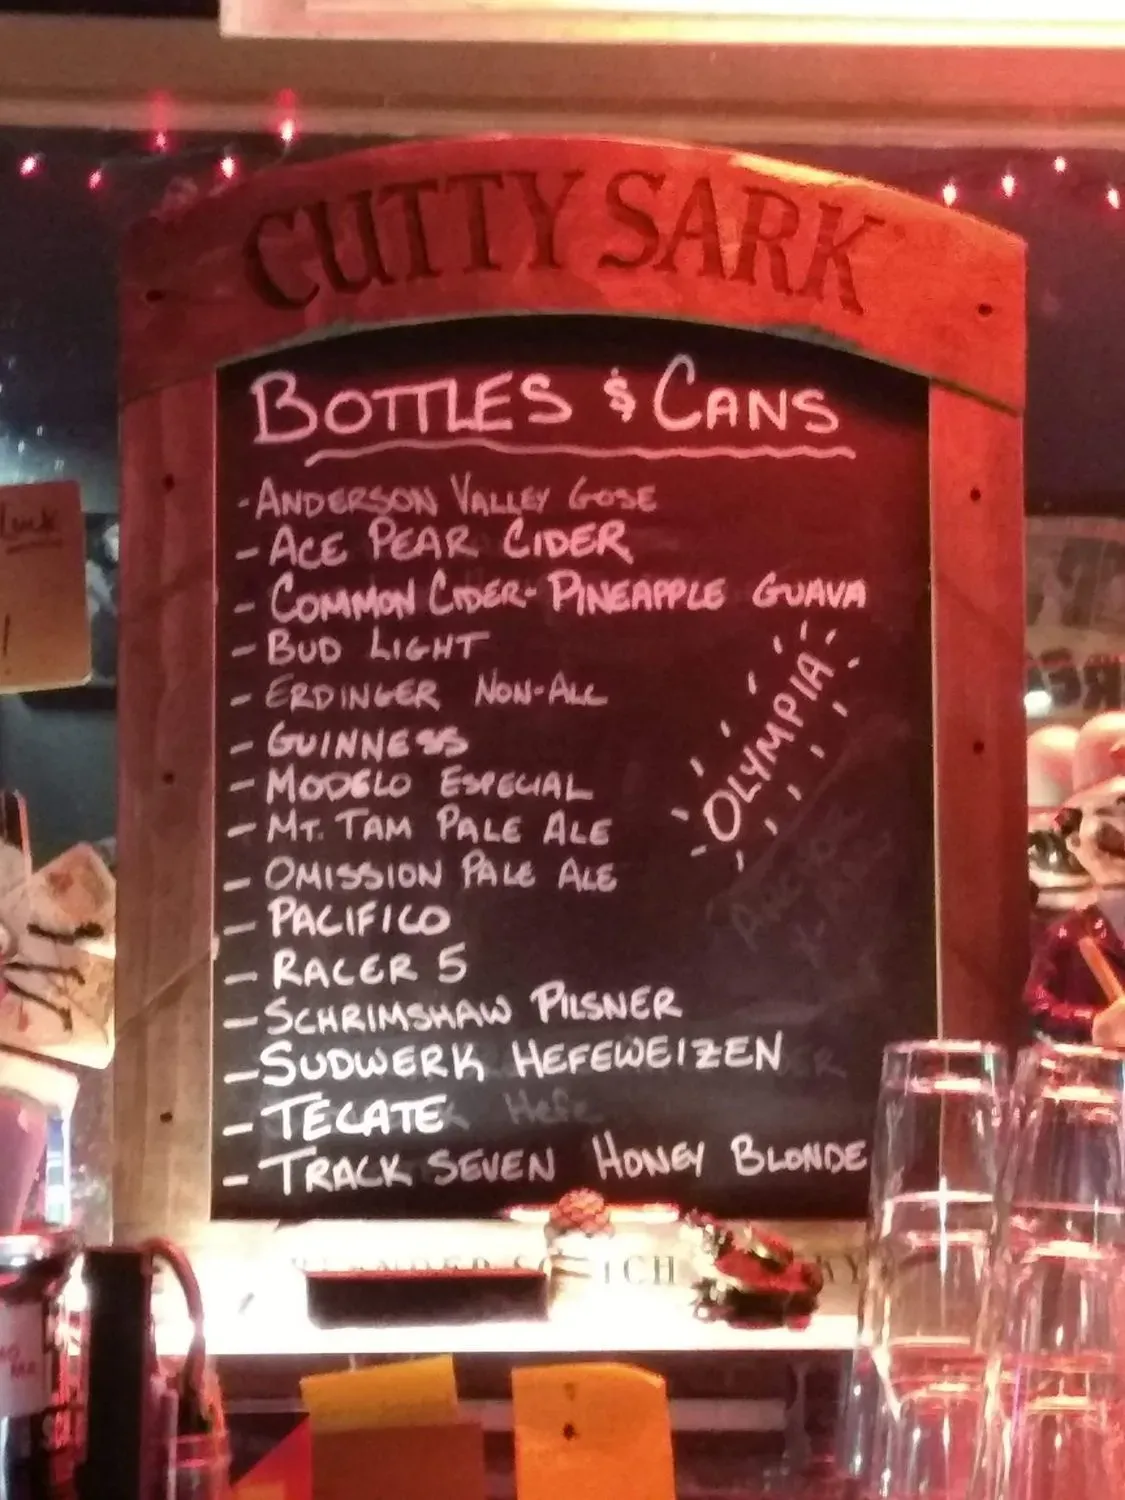 CUTTY SARK
BOTTLES & CANS
- ANDERSON VALLEY GOSE
- ACE PEAR CIDER
- COMMON CIDER- PINEAPPLE GUAVA
- BUD LIGHT
- ERDINGER NON-ALC
- GUINNESS
- MODELO ESPECIAL
- MT. TAM PALE ALE
- OMISSION PALE ALE
- PACIFICO
- RACER 5
- SCHRIMSHAW PILSNER
- SUDWERK HEFEWEIZEN
- TECATE
- TRACK SEVEN HONEY BLONDE
OLYMPIA
Hefe